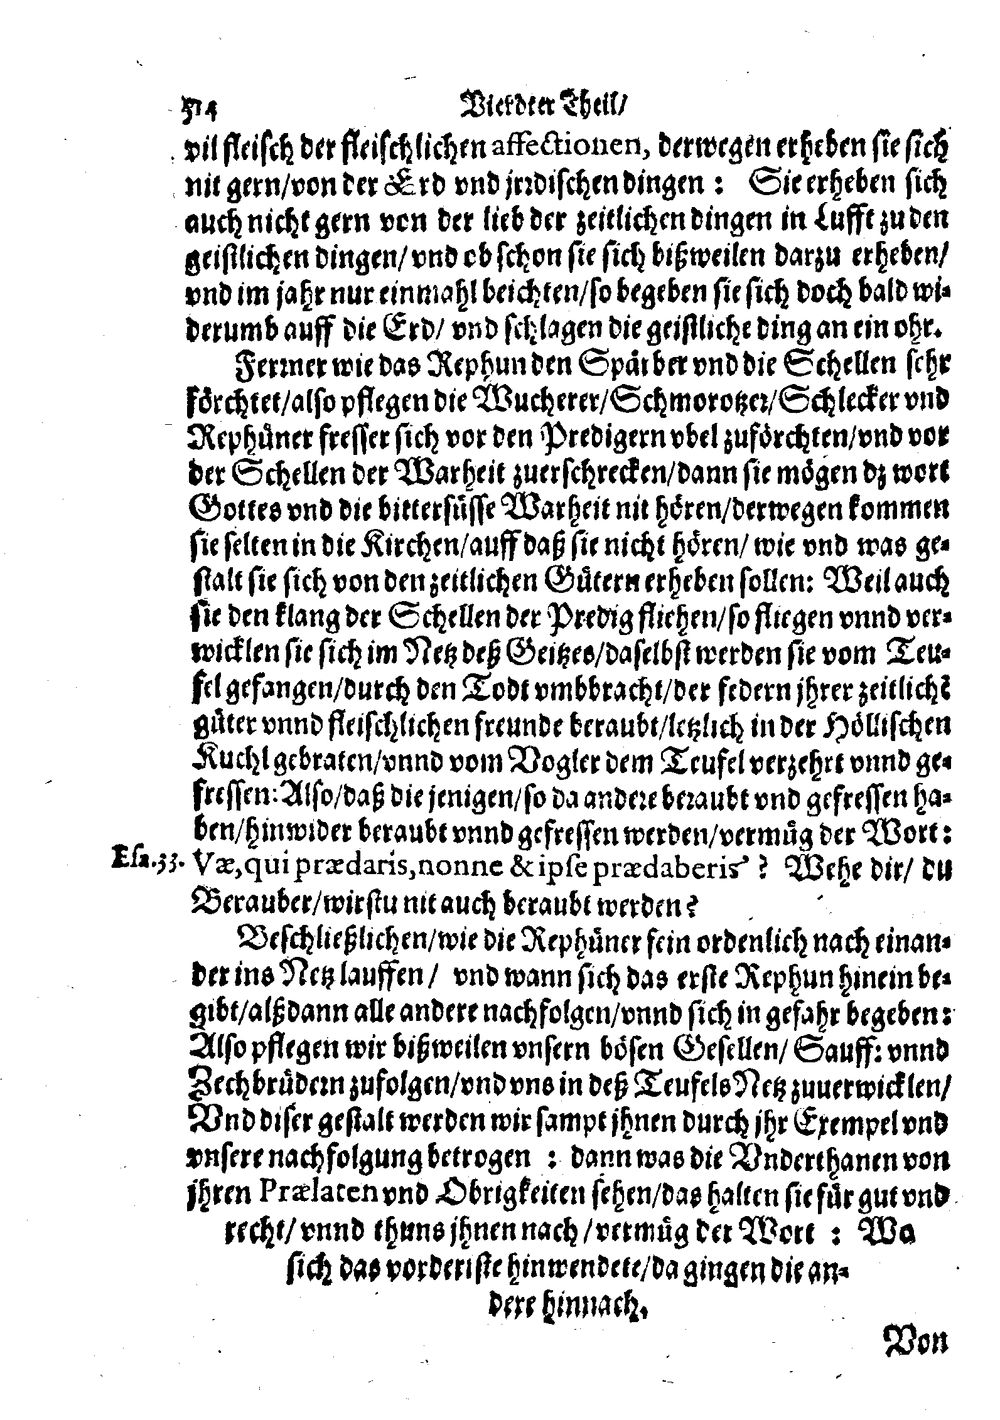 514 Vierdter Theil/
vil fleisch der fleischlichen affectionen, derwegen erheben sie sich
nit gern/von der Erd vnd jrrdischen dingen : Sie erheben sich
auch nicht gern von der lieb der zeitlichen dingen in Lufft zu den
geistlichen dingen/vnd ob schon sie sich bißweilen darzu erheben/
vnd im jahr nur einmahl beichten/so begeben sie sich doch bald wi-
derumb auff die Erd/ vnd schlagen die geistliche ding an ein ohr.
Ferrner wie das Rephun den Spärber vnd die Schellen sehr
förchtet/also pflegen die Wucherer/Schmorotzer/Schlecker vnd
Rephüner fresser sich vor den Predigern vbel zuförchten/vnd vor
der Schellen der Warheit zuerschrecken/dann sie mögen dz wort
Gottes vnd die bittersüsse Warheit nit hören/derwegen kommen
sie selten in die Kirchen/auff daß sie nicht hören/ wie vnd was ge-
stalt sie sich von den zeitlichen Gütern erheben sollen: Weil auch
sie den klang der Schellen der Predig fliehen/so fliegen vnnd ver-
wicklen sie sich im Netz deß Geitzes/daselbst werden sie vom Teu-
fel gefangen/durch den Todt vmbbracht/der federn jhrer zeitlichẽ
güter vnnd fleischlichen freunde beraubt/letzlich in der Höllischen
Kuchl gebraten/vnnd vom Vogler dem Teufel verzehrt vnnd ge-
fressen: Also/daß die jenigen/so da andere beraubt vnd gefressen ha-
ben/hinwider beraubt vnnd gefressen werden/vermüg der Wort:
Esa.33. Væ, qui prædaris, nonne & ipse prædaberis ? Wehe dir/ du
Berauber/wirstu nit auch beraubt werden?
Beschließlichen/wie die Rephüner fein ordenlich nach einan-
der ins Netz lauffen/ vnd wann sich das erste Rephun hinein be-
gibt/alßdann alle andere nachfolgen/vnnd sich in gefahr begeben:
Also pflegen wir bißweilen vnsern bösen Gesellen/ Sauff: vnnd
Zechbrüdern zufolgen/vnd vns in deß Teufels Netz zuuerwicklen/
Vnd diser gestalt werden wir sampt jhnen durch jhr Exempel vnd
vnsere nachfolgung betrogen : dann was die Vnderthanen von
jhren Prælaten vnd Obrigkeiten sehen/das halten sie für gut vnd
recht/ vnnd thuns jhnen nach/vermüg der Wort : Wa
sich das vorderiste hinwendete/da gingen die an-
dere hinnach.
Von